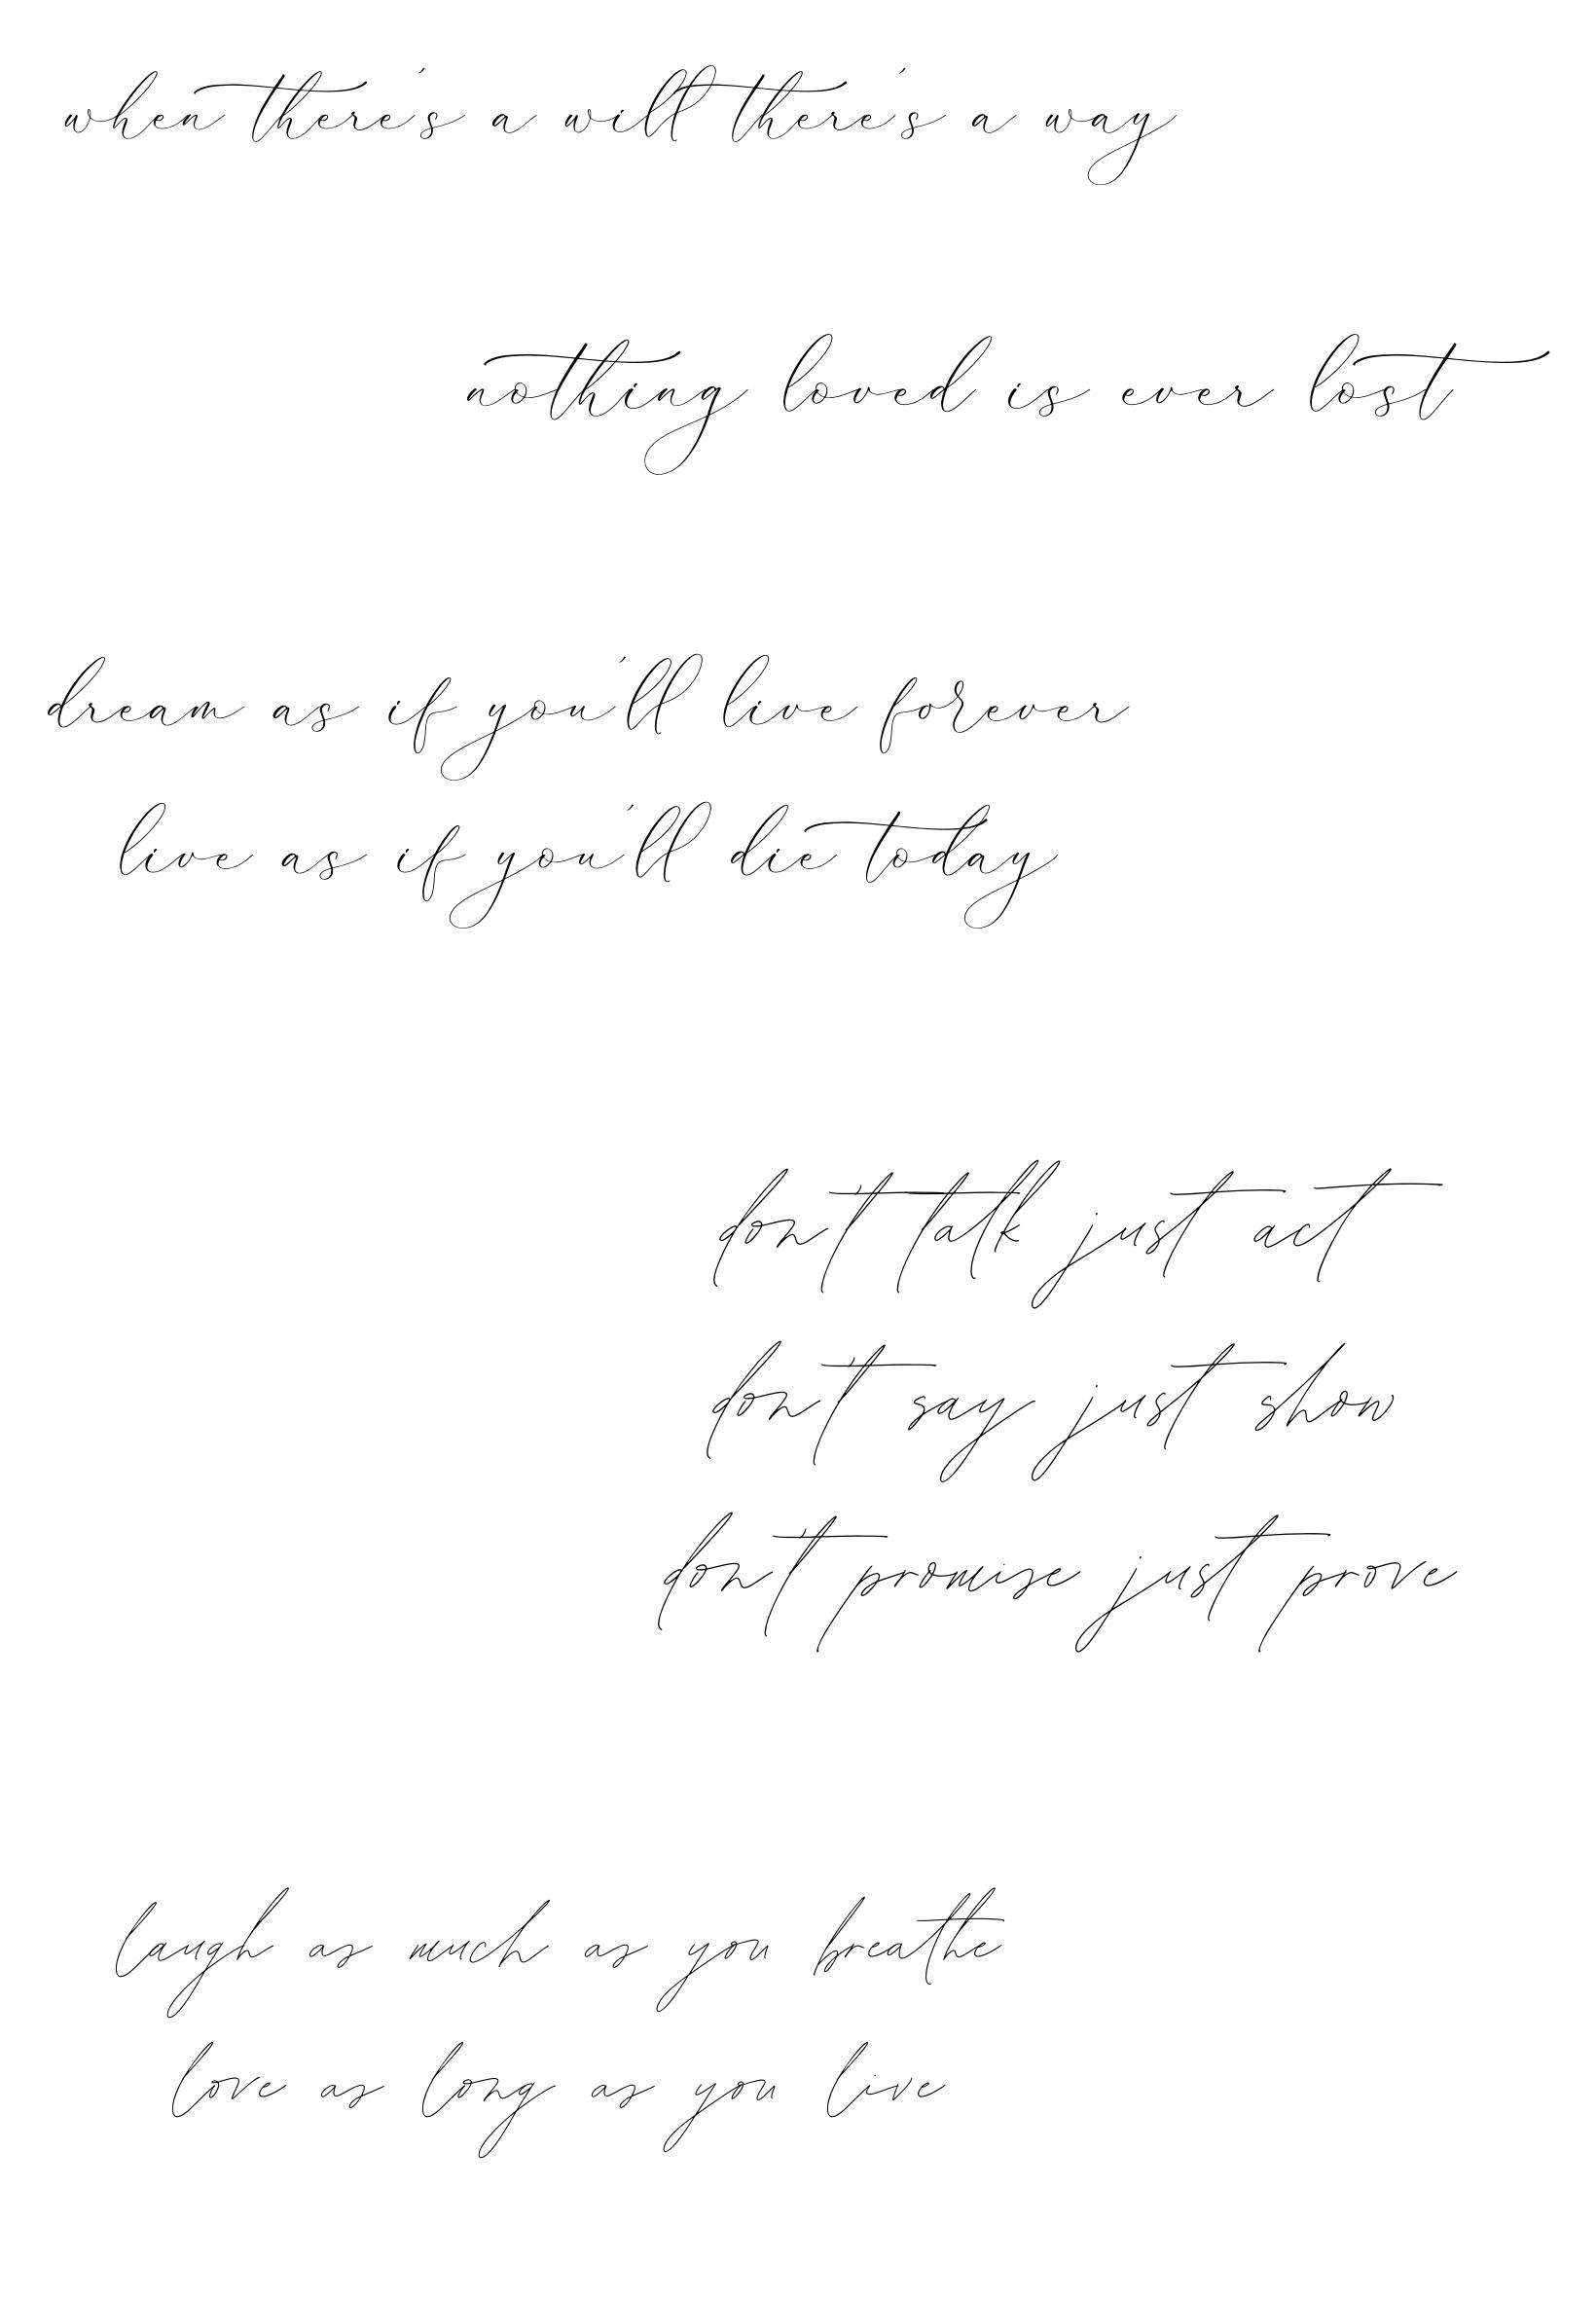 when there's a will there's a way
nothing loved is ever lost
dream as if you'll live forever
live as if you'll die today
don't talk just act
don't say just show
don't promise just prove
laugh as much as you breathe
love as long as you live